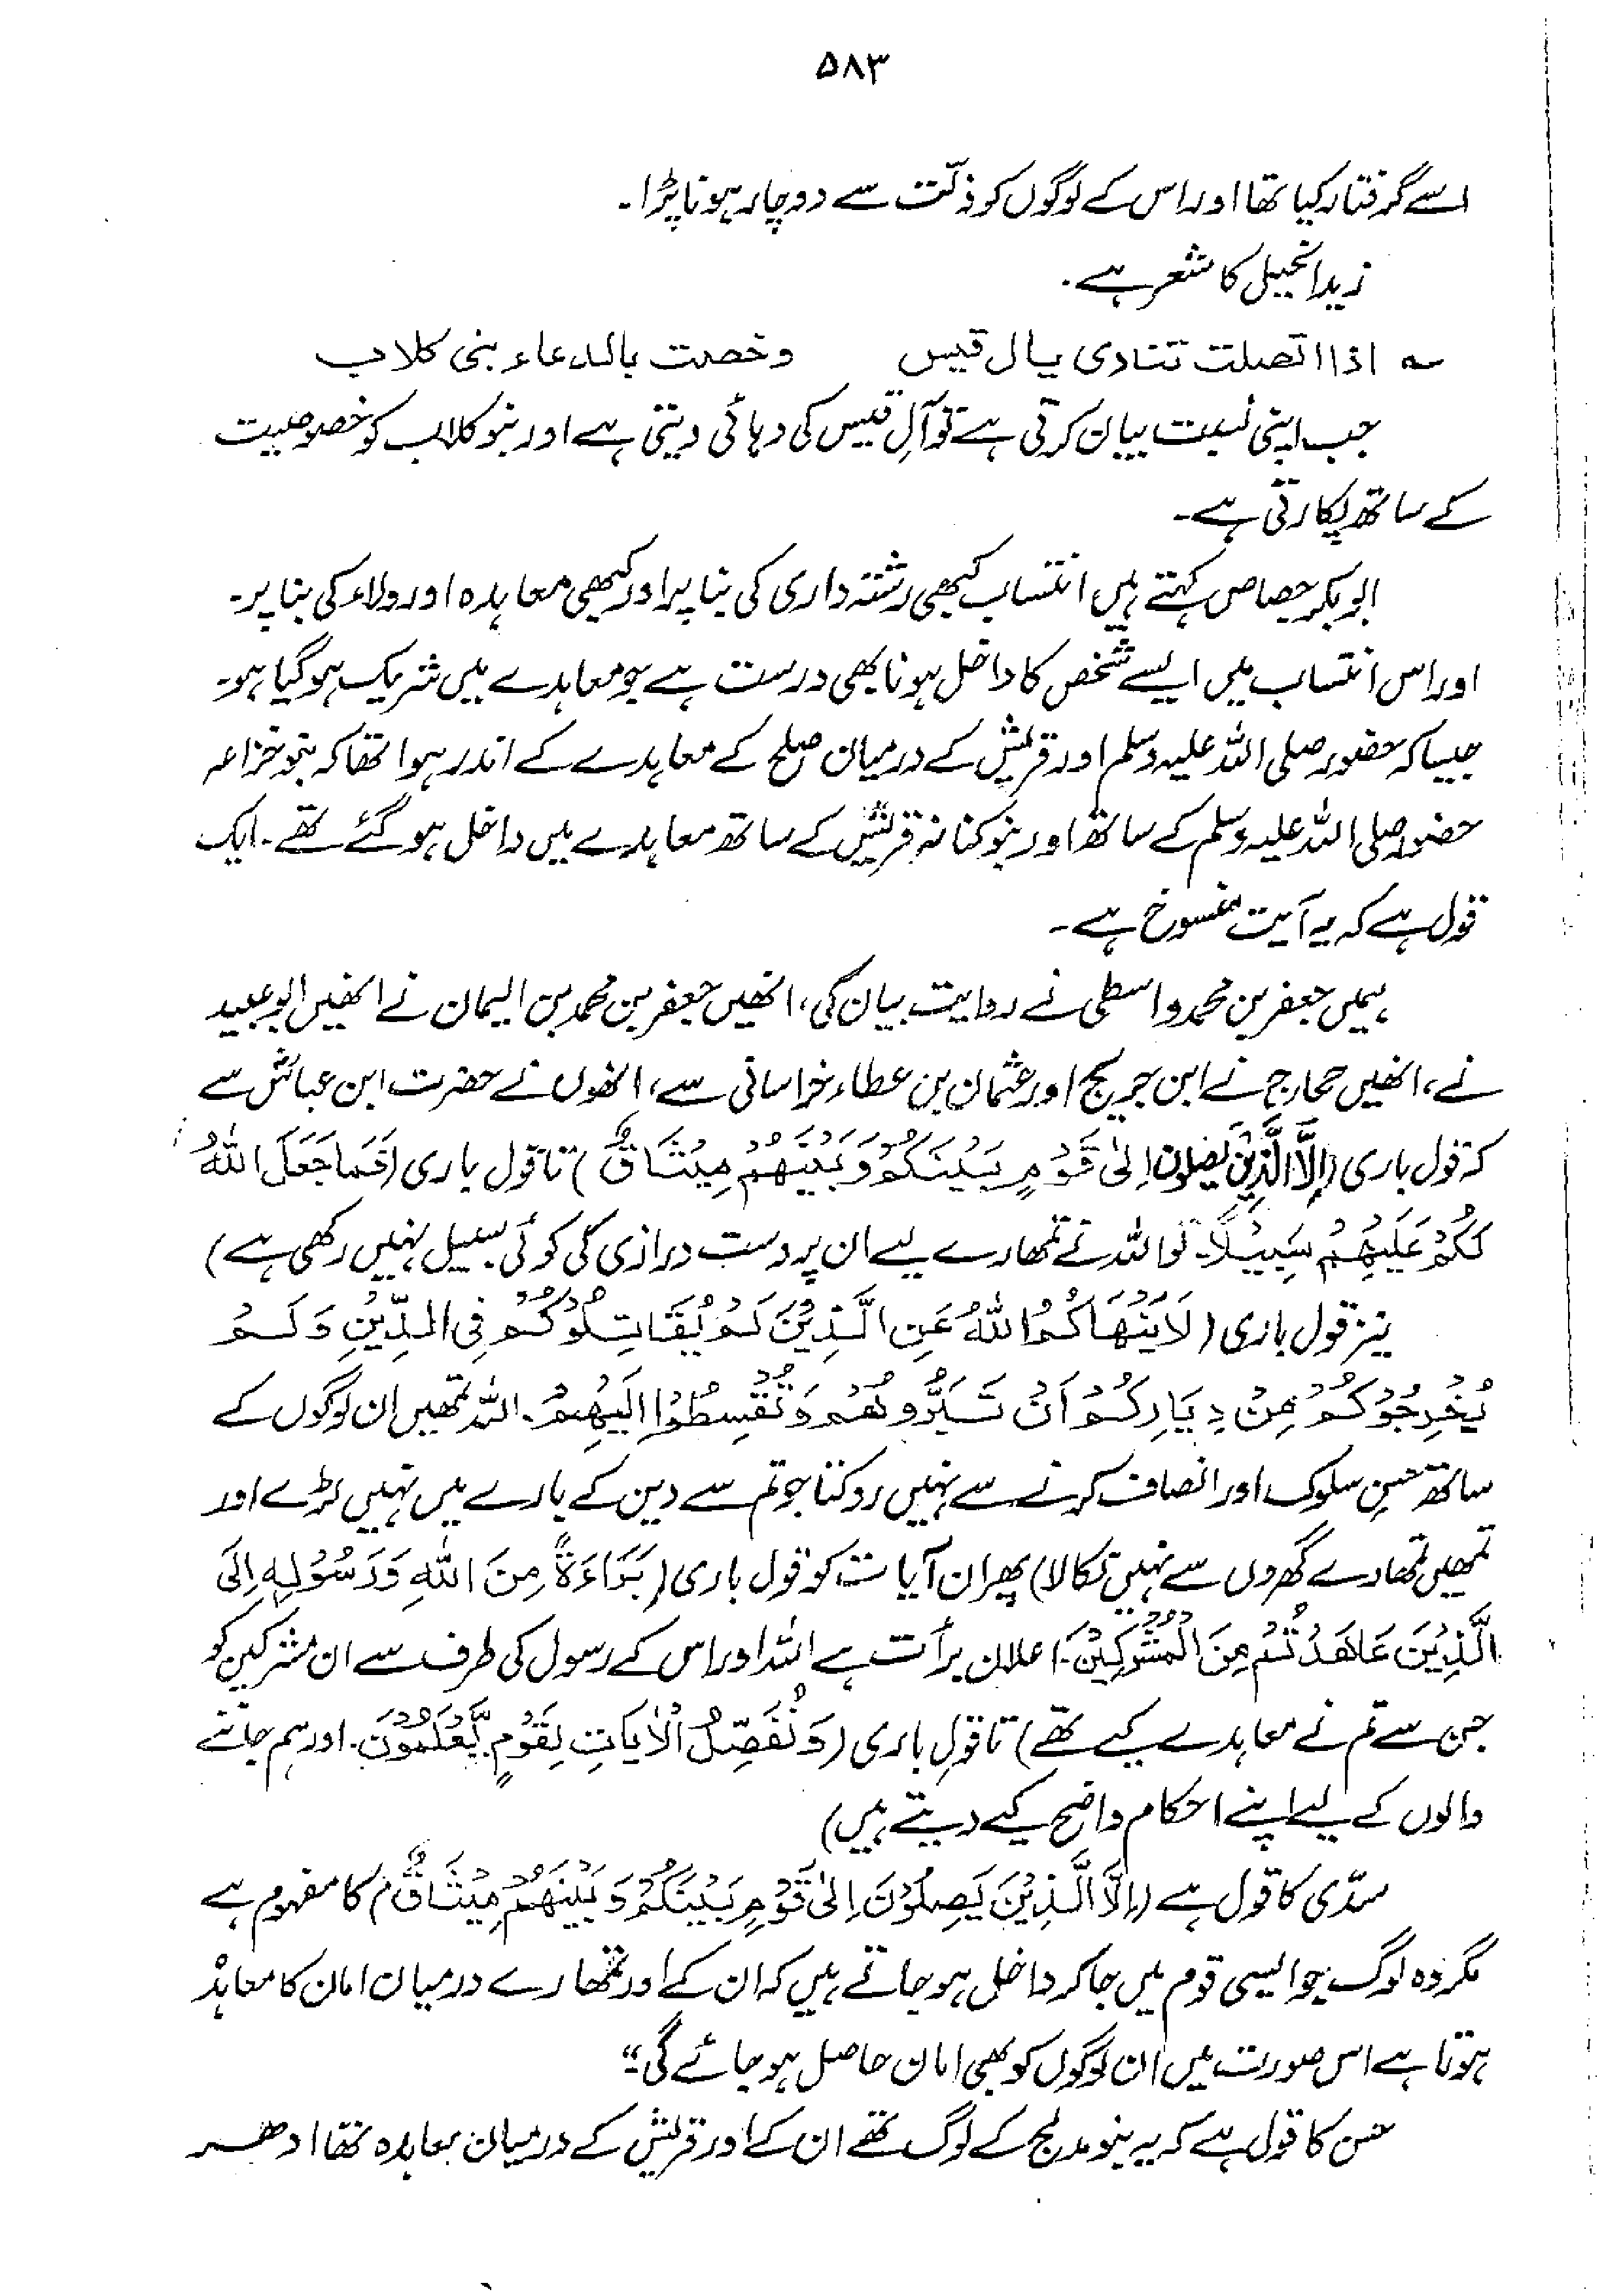 ۵۸۳
اسے گرفتار کیا تھا اور اس کے لوگوں کو ذلّت سے دوچار ہونا پڑا۔
زید الخیل کا شعر ہے۔
؎ اذا اتصلت تنادی یال قیس وخصت بالدعاء بنی کلاب
جب اپنی نسبت بیان کرتی ہے تو آلِ قیس کی دہائی دیتی ہے اور بنو کلاب کو خصوصیت
کے ساتھ پکارتی ہے۔
ابوبکر جصاص کہتے ہیں انتساب کبھی رشتہ داری کی بنا پر اور کبھی معاہدہ اور ولاء کی بنا پر۔
اور اس انتساب میں ایسے شخص کا داخل ہونا بھی درست ہے جو معاہدے میں شریک ہوگیا ہو۔
جیسا کہ حضور صلی اللہ علیہ وسلم اور قریش کے درمیان صلح کے معاہدے کے اندر ہوا تھا کہ بنو خزاعہ
حضور صلی اللہ علیہ وسلم کے ساتھ اور بنو کنانہ قریش کے ساتھ معاہدے میں داخل ہو گئے تھے۔ ایک
قول ہے کہ یہ آیت منسوخ ہے۔
ہمیں جعفر بن محمد واسطی نے روایت بیان کی، انھیں جعفر بن محمد بن الیمان نے انھیں ابو عبید
نے، انھیں حجاج نے ابن جریج اور عثمان بن عطاء خراسانی سے، انھوں نے حضرت ابن عباسؓ سے
کہ قول باری (اِلَّا الَّذِیْنَ یَصِلُوْنَ اِلیٰ قَوْمٍ بَیْنَکُمْ وَبَیْنَهُمْ مِیْثَاقٌ) تا قول باری (فَمَا جَعَلَ اللّٰهُ
لَکُمْ عَلَیْهِمْ سَبِیْلًا۔ تو اللہ نے تمھارے لیے ان پر دست درازی کی کوئی سبیل نہیں رکھی ہے)
نیز قول باری (لَا یَنْهَاکُمُ اللّٰهُ عَنِ الَّذِیْنَ لَمْ یُقَاتِلُوْکُمْ فِی الدِّیْنِ وَلَمْ
یُخْرِجُوْکُمْ مِنْ دِیَارِکُمْ اَنْ تَبَرُّوهُمْ وَتُقْسِطُوْا اِلَیْهِمْ۔ اللہ تمھیں ان لوگوں کے
ساتھ حسنِ سلوک اور انصاف کرنے سے نہیں روکتا جو تم سے دین کے بارے میں نہیں لڑے اور
تمھیں تمھارے گھروں سے نہیں نکالا) پھر ان آیات کو قول باری (بَرَاءَةٌ مِنَ اللّٰهِ وَرَسُوْلِهٖ اِلَی
الَّذِیْنَ عَاهَدْتُمْ مِنَ الْمُشْرِکِیْنَ۔ اعلان برأت ہے اللہ اور اس کے رسول کی طرف سے ان مشرکین کو
جن سے تم نے معاہدے کیے تھے) تا قولِ باری (وَنُفَصِّلُ الْاٰیَاتِ لِقَوْمٍ یَّعْلَمُوْنَ۔ اور ہم جاننے
والوں کے لیے اپنے احکام واضح کیے دیتے ہیں)
سدّی کا قول ہے (اِلَّا الَّذِیْنَ یَصِلُوْنَ اِلیٰ قَوْمٍ بَیْنَکُمْ وَبَیْنَهُمْ مِیْثَاقٌ) کا مفہوم ہے
مگر وہ لوگ جو ایسی قوم میں جا کر داخل ہو جاتے ہیں کہ ان کے اور تمھارے درمیان امان کا معاہدہ
ہوتا ہے اس صورت میں ان لوگوں کو بھی امان حاصل ہو جائے گی۔“
حسن کا قول ہے کہ یہ بنو مدلج کے لوگ تھے ان کے اور قریش کے درمیان معاہدہ تھا ادھر